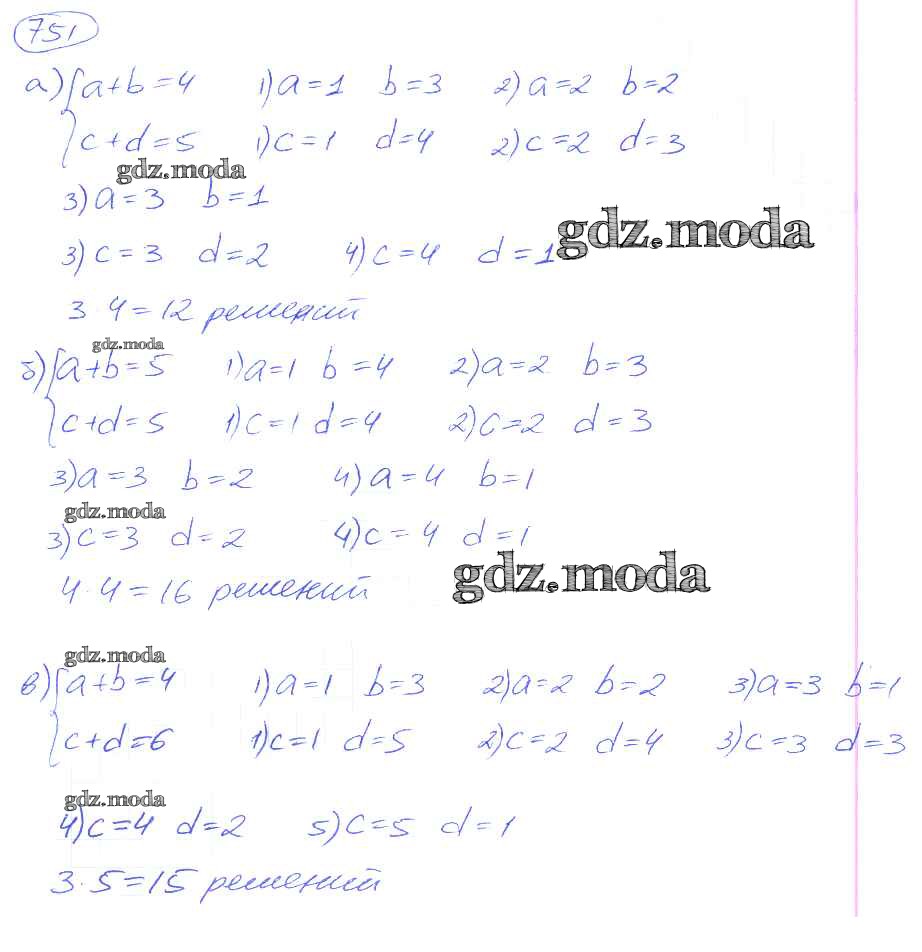 751
а) { a+b=4 1) a=1 b=3 2) a=2 b=2
c+d=5 1) c=1 d=4 2) c=2 d=3
gdz.moda
3) a=3 b=1
gdz.moda
3) c=3 d=2 4) c=4 d=1
3 4=12 решений
gdz.moda
б) { a+b=5 1) a=1 b=4 2) a=2 b=3
c+d=5 1) c=1 d=4 2) c=2 d=3
3) a=3 b=2 4) a=4 b=1
gdz.moda
3) c=3 d=2 4) c=4 d=1
gdz.moda
4·4=16 решений
gdz.moda
в) { a+b=4 1) a=1 b=3 2) a=2 b=2 3) a=3 b=1
c+d=6 1) c=1 d=5 2) c=2 d=4 3) c=3 d=3
gdz.moda
4) c=4 d=2 5) c=5 d=1
3·5=15 решений